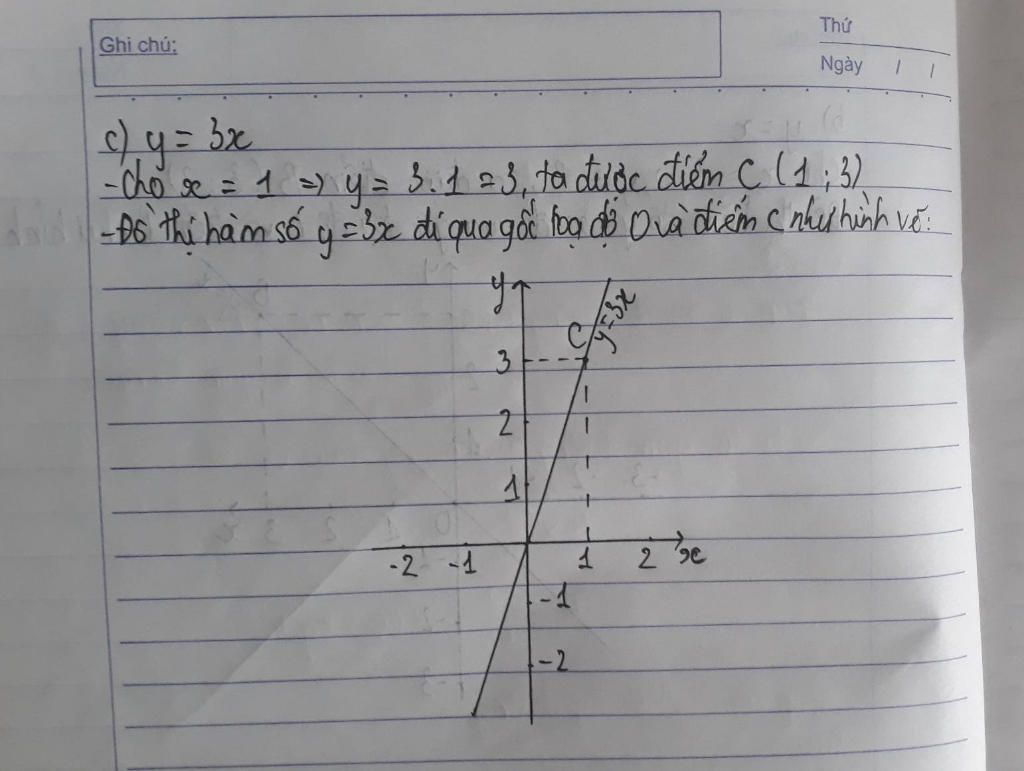 Ghi chú:
Thứ
Ngày / /
c) y = 3x
- Cho x = 1 => y = 3.1 = 3, ta được điểm C (1; 3)
- Đồ thị hàm số y = 3x đi qua gốc toạ độ O và điểm C như hình vẽ:
y
y=3x
C
3
2
1
-2 -1 1 2 x
-1
-2